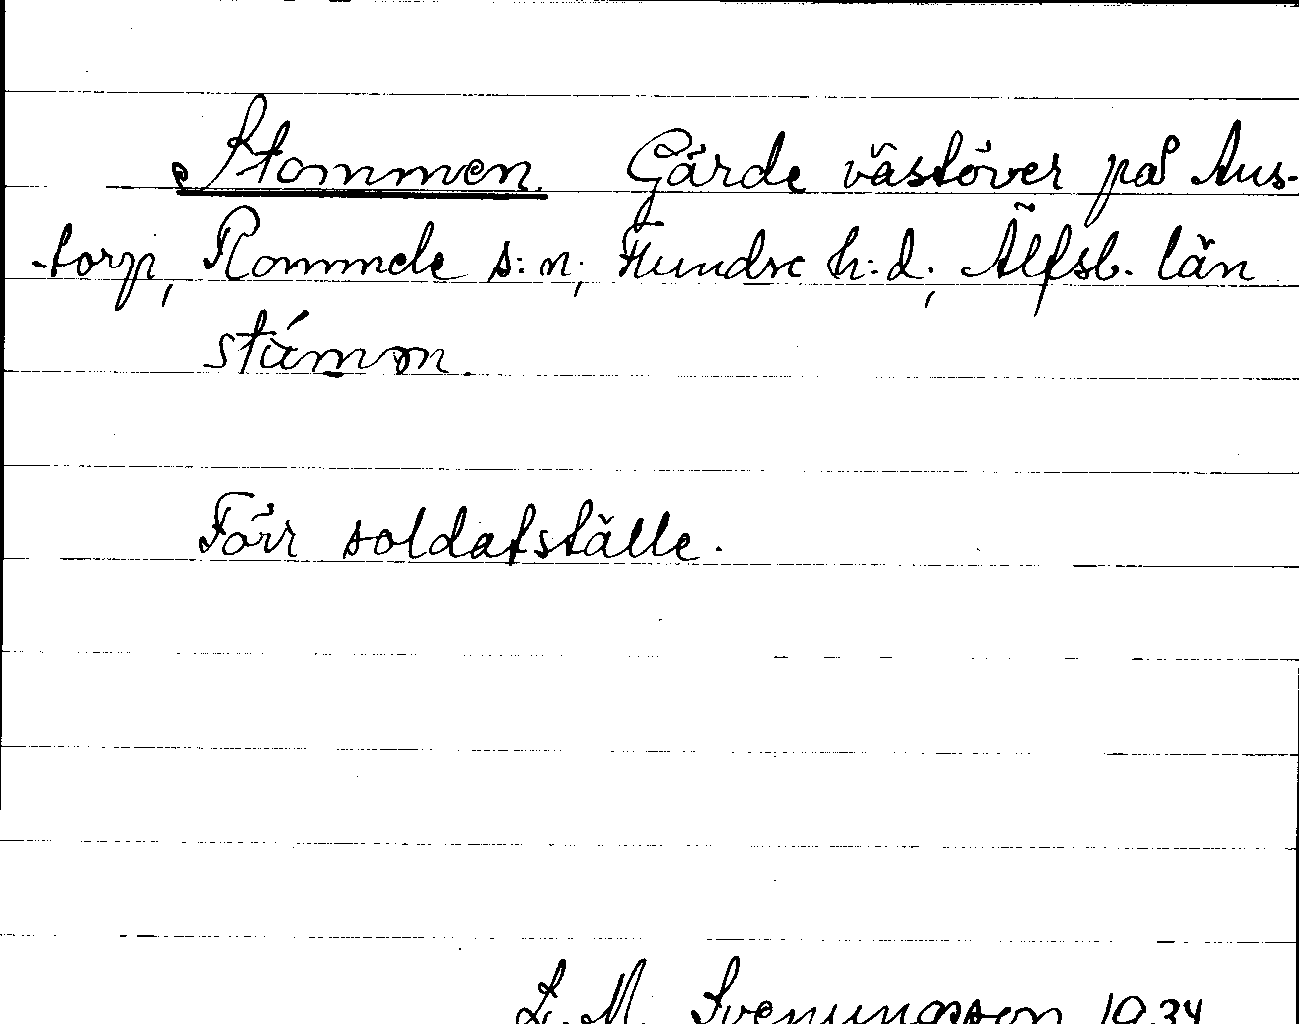 Stommen. Gärde västöver på Aus-
-torp, Rommele s:n; Flundre h:d; Älfsb. län
stámm.
Förr soldatställe.
L. M. Svenungsson 1934